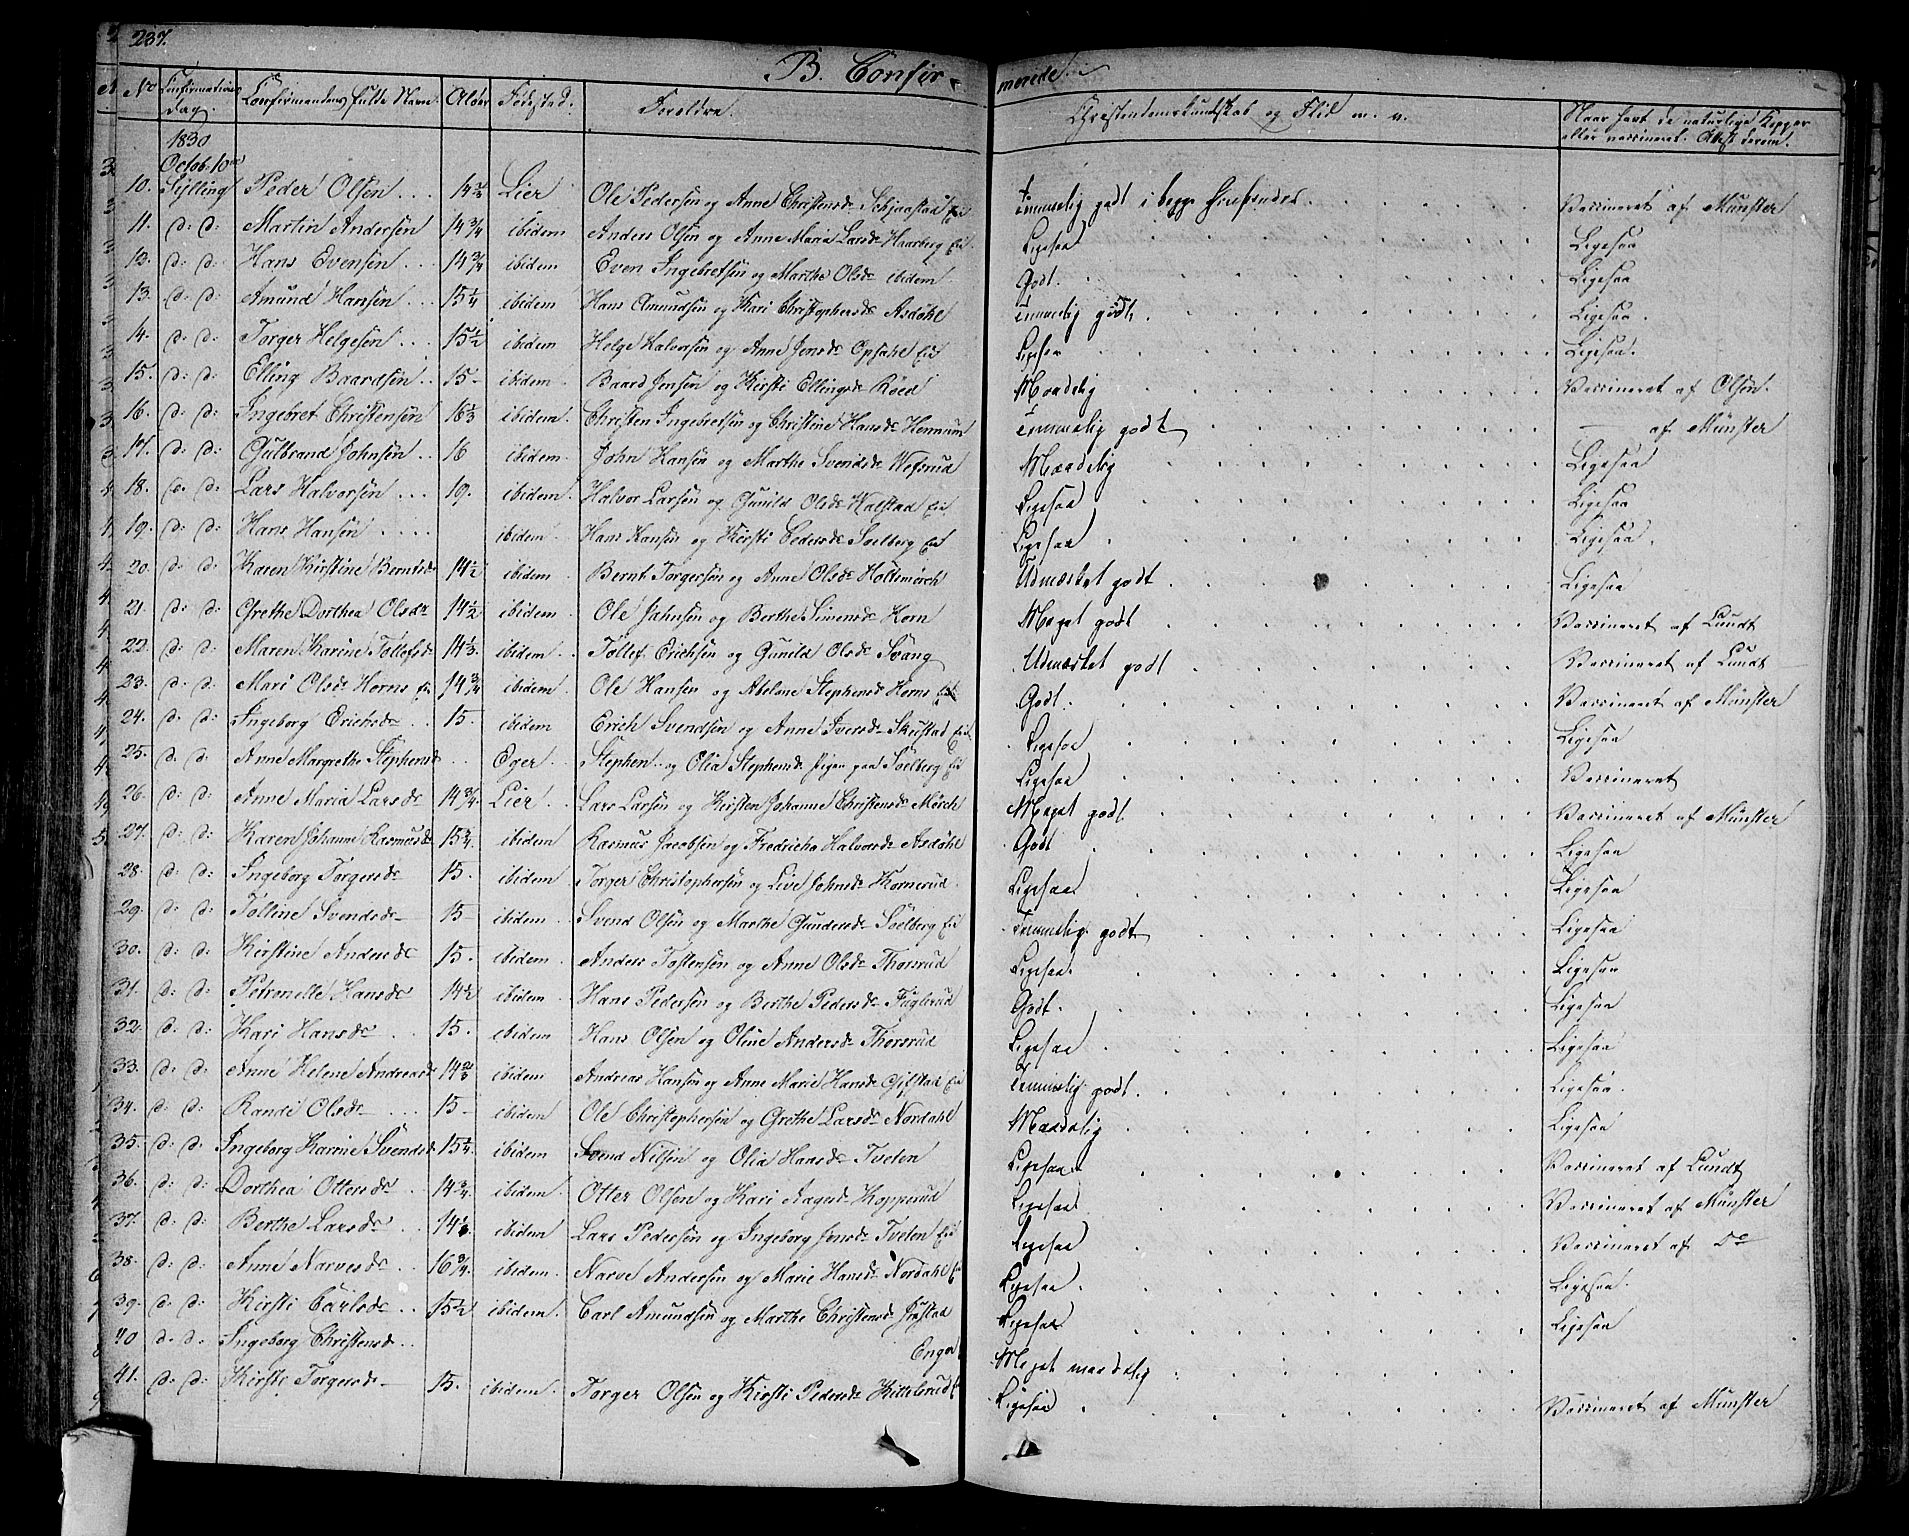 237.
B. Confir-
merede.
No Confirmations Dag. Confirmandens fulde Navn. Alder Fødested. Foreldre. Christendomskundskab og Flid m. v. Naar havt de naturlige Kopper eller vaccineret. Attest derom.
1830
Octob: 10de
10. Sylling Peder Olsen . . . 14 3/4 Lier Ole Pedersen og Anne Christensdr Eie temmelig godt i begge Henseender. Vaccineret af Münster
11. d: d: Martin Andersen 14 3/4 ibidem Anders Olsen og Anne Maria Larsdr Haarberg Eie Ligesaa Ligesaa
12. d: d: Hans Evensen . . 14 3/4 ibidem Even Ingebretsen og Marthe Olsdr ibidem Godt. Ligesaa
13. d: d: Amund Hansen . . . 15 1/4 ibidem Hans Amundsen og Kari Christophersdr Asdøhl temmelig godt. Ligesaa.
14. d: d: Torger Helgesen . . . 15 1/2 ibidem Helge Halvorsen og Anne Jonsdr Opsahl Eie Ligesaa Ligesaa.
15. d: d: Elling Baardsen . . 15 ibidem Baard Jensen og Kirsti Ellingsdr Røed Maadelig Vaccineret af Olsen.
16. d: d: Ingebret Christensen 16 1/3 ibidem Christen Ingebretsen og Christine Hansdr Hennum temmelig godt — af Münster
17. d: d: Gulbrand Johnsen . . 16 ibidem John Hansen og Marthe Svendsdr Wefsrud Maadelig Ligesaa
18. d: d: Lars Halvorsen . . . 19. ibidem Halvor Larsen og Gunild Olsdr Walstad Eie Ligesaa Ligesaa
19. d: d: Hans Hansen . . . . ibidem Hans Hansen og Kirsti Pedersdr Soelberg Eie Ligesaa Ligesaa.
20. d: d: Karen Kirstine Berntsdr 14 1/2 ibidem Bernt Torgersen og Anne Olsdr Holtsmørch Udmærket godt Ligesaa
21. d: d: Grethe Dorthea Olsdr 14 1/2 ibidem Ole Jahnsen og Berthe Simensdr Horn Meget godt Vaccineret af Lundt
22. d: d: Maren Karine Tollefsdr 14 1/3 ibidem. Tollef Erichsen og Gunild Olsdr Svang Udmærket godt Vaccineret af Lundt
23. d: d: Mari Olsdr Horns Eie 14 3/4 ibidem Ole Hansen og Abelone Stephensdr Horns Eie Godt. Vaccineret af Münster
24. d: d: Ingeborg Erichsdr . . 15. ibidem Erich Svendsen og Anne Iversdr Skustad Eie Ligesaa Ligesaa
25. d: d: Anne Margrethe Stephensdr . . Eger Stephen . . og Olia Stephensdr Pigen paa Soelberg Eie Ligesaa Vaccineret
26. d: d: Anne Maria Larsdr 14 3/4 Lier Lars Larsen og Kirsten Johanne Christensdr Mørch Meget godt Vaccineret af Münster
27. d: d: Karen Johanne Rasmusdr 15 3/4 ibidem Rasmus Jacobsen og Fredricha Halvorsdr Asdøhl Godt Ligesaa
28. d: d: Ingeborg Torgersdr 15. ibidem Torger Christophersen og Live Johnsdr Kornerud. Ligesaa Ligesaa
29. d: d: Tolline Svendsdr 15 ibidem. Svend Olsen og Marthe Gundersdr Soelberg Eie Temmelig godt Ligesaa
30. d: d: Kirstine Andersdr 15. ibidem. Anders Tostensen og Anne Olsdr Thorsrud Ligesaa. Ligesaa
31. d: d: Petronelle Hansdr 14 1/2 ibidem Hans Pedersen og Berthe Pedersdr Fuglerud Godt. Ligesaa
32. d: d: Kari Hansdr . 15. ibidem Hans Olsen og Oline Andersdr Thorsrud Ligesaa Ligesaa
33. d: d: Anne Helene Andreasdr 14 2/3 ibidem Andreas Hansen og Anne Marie Hansdr Gifstad Eie Temmelig godt. Ligesaa.
34. d: d: Randi Olsdr . . . 15. ibidem Ole Christophersen og Grethe Larsdr Nordahl Maadelig Ligesaa
35. d: d: Ingeborg Karine Svendsdr 15 1/4 ibidem Svend Nilsen og Olia Hansdr Tveten Ligesaa. Vaccineret af Lundt
36. d: d: Dorthea Ottersdr . 14 3/4 ibidem. Otter Olsen og Kari Aagesdr Kopperud Ligesaa Vaccineret af Münster
37. d: d: Berthe Larsdr . . 14 ibidem Lars Pedersen og Ingeborg Jonsdr Tveten Eie Ligesaa Vaccineret af Do
38. d: d: Anne Narvesdr . . 16 3/4 ibidem. Narve Andersen og Marie Hansdr Nordahl Eie Ligesaa Ligesaa.
39. d: d: Kirsti Carlsdr . . 15 1/2 ibidem Carl Amundsen og Marthe Christensdr Ligesaa Ligesaa
40 d: d: Ingeborg Christensdr . . Enger Meget maadelig
41. d: d: Kirsti Torgersdr 15. ibidem. Torger Olsen og Kirsti Pedersdr Kittilsrud Ligesaa Vaccineret af Münster